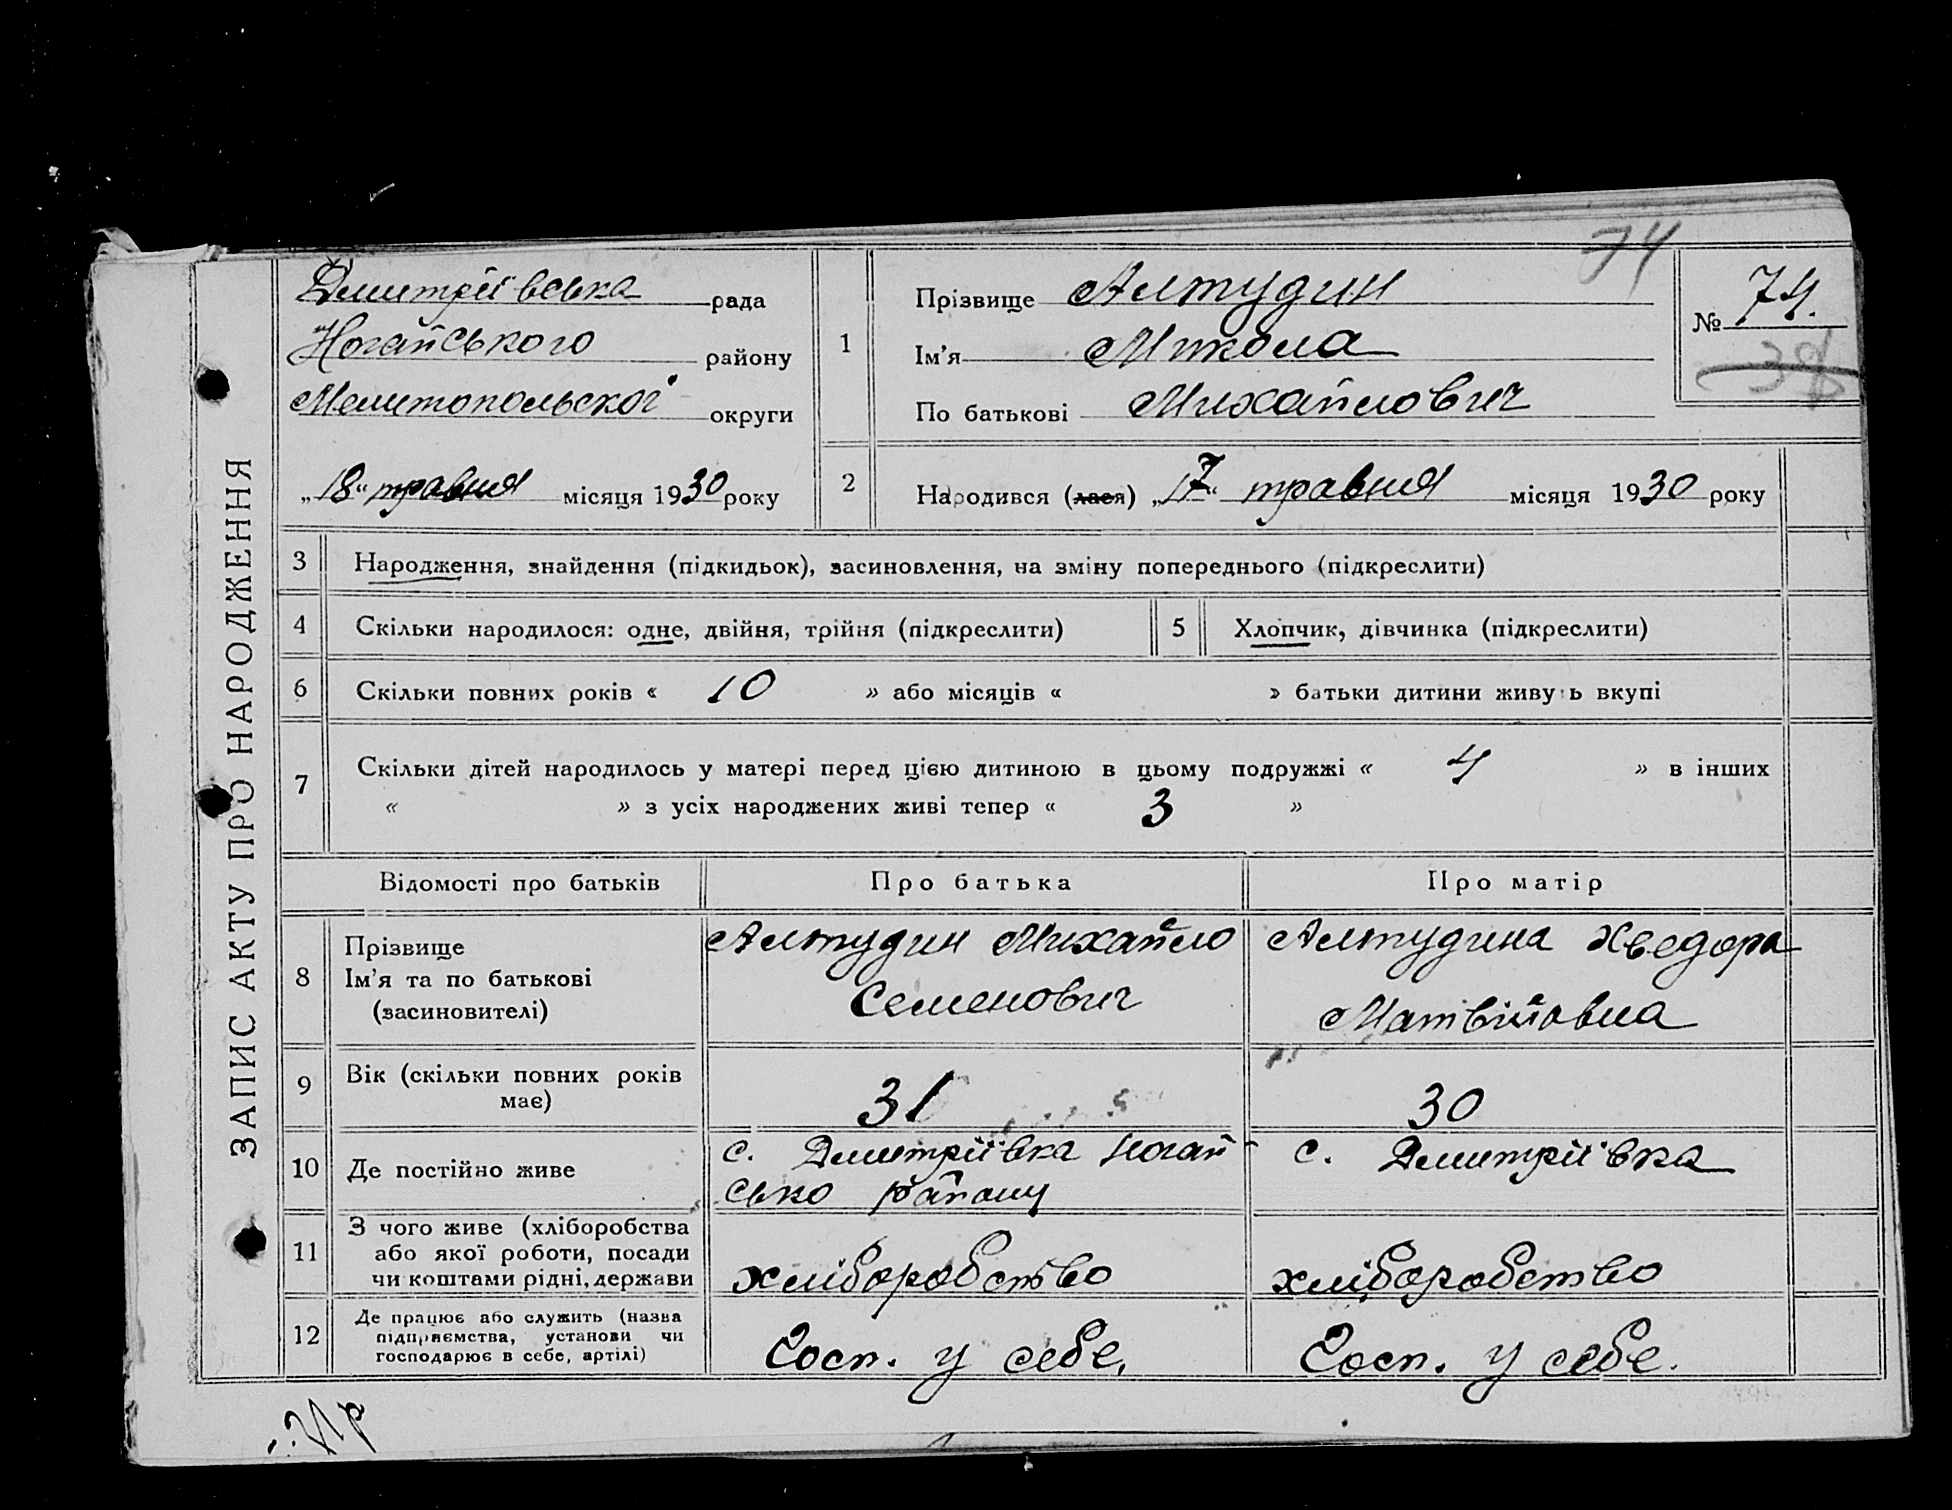 74
Дмитріївська рада
Ногайського району
Мелитопольської округи
„18“ травня місяця 1930 року
1
Прізвище Алтудин
Ім'я Микола
По батькові Михайлович
№ 74.
38
2
Народився (лася) „17“ травня місяця 1930 року
ЗАПИС АКТУ ПРО НАРОДЖЕННЯ
3 Народження, знайдення (підкидьок), засиновлення, на зміну попереднього (підкреслити)
4 Скільки народилося: одне, двійня, трійня (підкреслити)
5 Хлопчик, дівчинка (підкреслити)
6 Скільки повних років « 10 » або місяців « » батьки дитини живуть вкупі
7 Скільки дітей народилось у матері перед цією дитиною в цьому подружжі « 4 » в інших
« » з усіх народжених живі тепер « 3 »
Відомості про батьків
Про батька
Про матір
8
Прізвище
Ім'я та по батькові
(засиновителі)
Алтудин Михайло
Семенович
Алтудина Хведора
Матвійовна
9
Вік (скільки повних років
має)
31
30
10
Де постійно живе
с. Дмитріївка Ногай-
сько району
с. Дмитріївка
11
З чого живе (хліборобства
або якої роботи, посади
чи коштами рідні, держави
хліборобство
хліборобство
12
Де працює або служить (назва
підприємства, установи чи
господарює в себе, артілі)
Госп. у себе.
Госп. у себе.